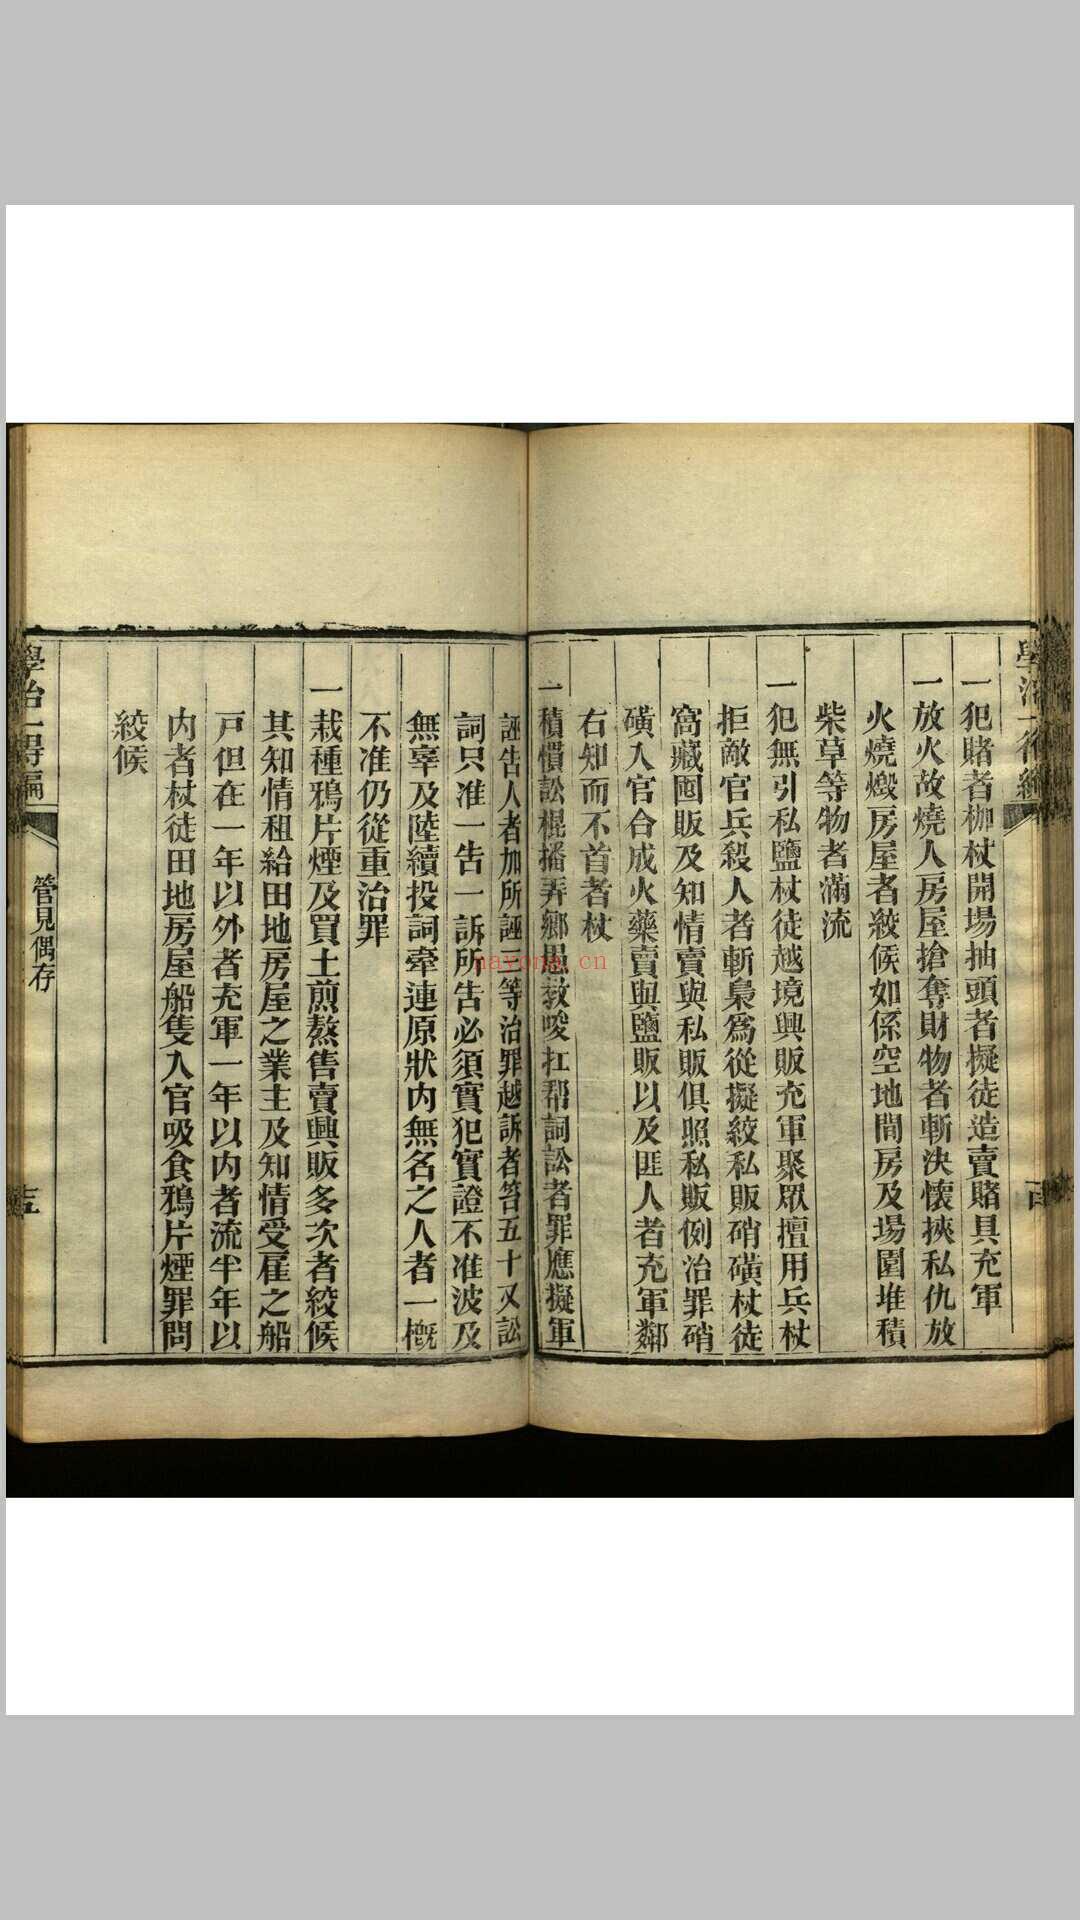 學治一得編
一犯賭者枷杖開場抽頭者擬徒造賣賭具充軍
一放火故燒人房屋搶奪財物者斬決懷挾私仇放
火燒燬房屋者絞候如係空地閒房及場園堆積
柴草等物者滿流
一犯無引私鹽杖徒越境興販充軍聚眾擅用兵杖
拒敵官兵殺人者斬梟為從擬絞私販硝磺杖徒
窩藏囤販及知情賣與私販俱照私販例治罪硝
磺入官合成火藥賣與鹽販以及匪人者充軍鄰
右知而不首者杖
一積慣訟棍播弄鄉愚教唆扛帮詞訟者罪應擬軍
誣告人者加所誣三等治罪越訴者笞五十又訟
詞只准一告一訴所告必須實犯實證不准波及
無辜及陸續投詞牽連原狀內無名之人者一概
不准仍從重治罪
一栽種鴉片煙及買土煎熬售賣興販多次者絞候
其知情租給田地房屋之業主及知情受雇之船
戸但在一年以外者充軍一年以內者流半年以
內者杖徒田地房屋船隻入官吸食鴉片煙罪問
絞候
學治一得編
管見偶存
十五
nayona.cn